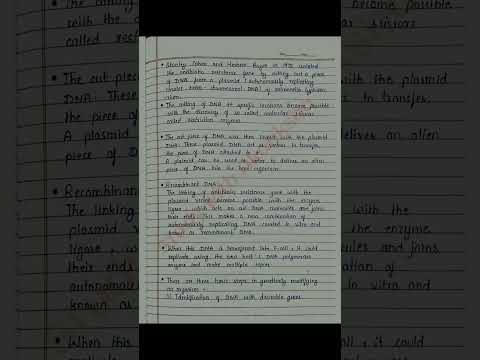 • Stanley Cohen and Herbert Boyer in 1972 isolated
the antibiotic resistance gene by cutting out a piece
of DNA from a plasmid (autonomously replicating
circular extra-chromosomal DNA) of salmonella typhimu-
rium.
• The cutting of DNA at specific locations became possible
with the discovery of so called molecular scissors
called restriction enzymes.
• The cut piece of DNA was then linked with the plasmid
DNA. These plasmid DNA act as vectors to transfer
the piece of DNA attached to it.
A plasmid can be used as vector to deliver an alien
piece of DNA into the host organism.
• Recombinant DNA:
The linking of antibiotic resistance gene with the
plasmid vector became possible with the enzyme
ligase, which acts on cut DNA molecules and joins
their ends. This makes a new combination of
autonomously replicating DNA created in vitro and
known as recombinant DNA.
• When this DNA is transferred into E.coli, it could
replicate using the new host's DNA polymerase
enzyme and make multiple copies.
• There are three basic steps in genetically modifying
an organism -
1) Identification of DNA with desirable genes